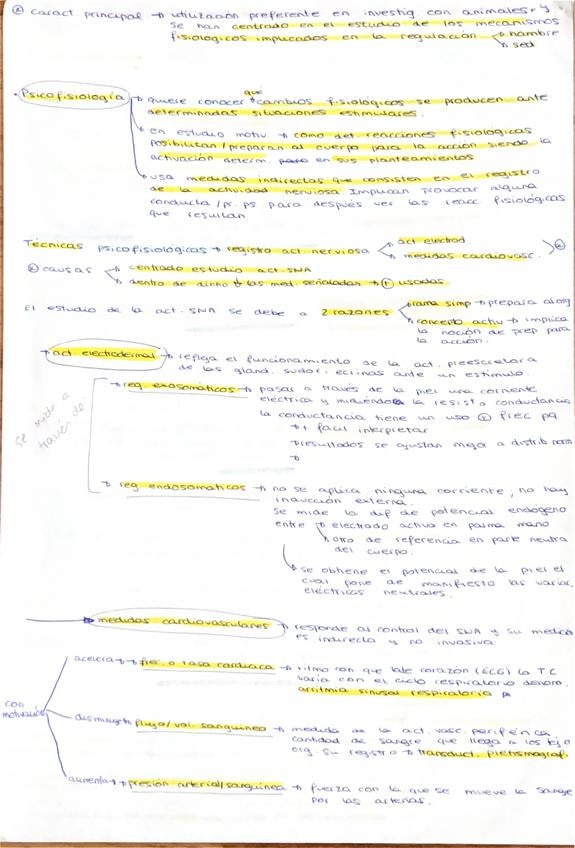 caract principal → utilización preferente en investig con animales y
se han centrado en el estudio de los mecanismos
fisiológicos implicados en la regulación → hambre
→ sed
· Psicofisiología → quiere conocer que cambios fisiológicos se producen ante
determinadas situaciones estimulares.
→ en estudio motiv. → como det. reacciones fisiológicas
posibilitan/preparan al cuerpo para la acción siendo la
activación determ. en sus planteamientos
→ usa medidas indirectas que consisten en el registro
de la actividad nerviosa. Implican provocar alguna
conducta/pr. ps para después ver las reacc fisiológicas
que resultan.
Técnicas psicofisiológicas → registro act. nerviosa
act electrod.
medidas cardiovasc.
causas
centrado estudio act. SNA
dentro de dicho las med. señaladas → + usadas
El estudio de la act. SNA se debe a 2 razones
rama simp → prepara al org
concepto activ → implica
la noción de prep para
la acción.
→ act electrodermal → refleja el funcionamiento de la act. presecretora
de las gland. sudor. ecrinas ante un estímulo.
se mide a
través de
reg. exosomáticos → pasar a través de la piel una corriente
eléctrica y midiéndola la resist o conductancia
la conductancia tiene un uso + frec pq
→ + fácil interpretar
→ resultados se ajustan mejor a distrib norm
→
reg endosomáticos → no se aplica ninguna corriente, no hay
inducción externa.
Se mide la dif de potencial endógeno
entre → electrodo activo en palma mano
→ otro de referencia en parte neutra
del cuerpo.
→ se obtiene el potencial de la piel el
cual pone de manifiesto las variac.
eléctricas neutrales.
→ medidas cardiovasculares → responde al control del SNA y su medida
es indirecta y no invasiva
con
motivación
acelera → frec. o tasa cardiaca → ritmo con que late corazón (ECG) la TC
varía con el ciclo respiratorio denom.
arritmia sinusal respiratoria
disminuye → flujo/vol sanguíneo → medida de la act. vasc. periférica
cantidad de sangre que llega a los tejo
org. su registro → transduct. pletismograf.
aumenta → presión arterial/sanguínea → fuerza con la que se mueve la sangre
por las arterias.